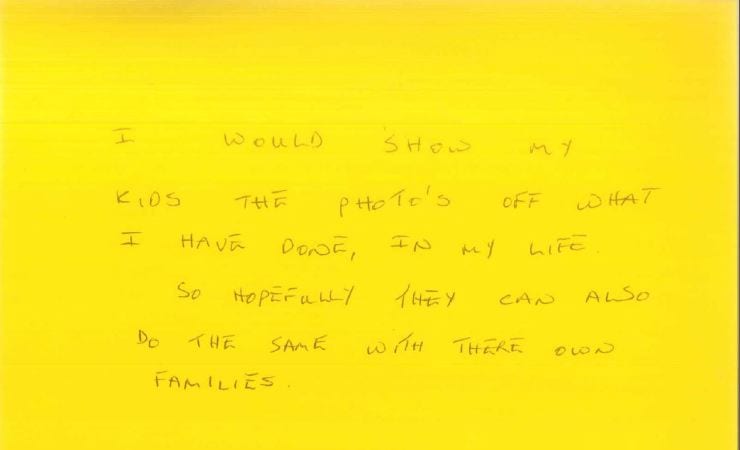 I WOULD SHOW MY
KIDS THE PHOTO'S OFF WHAT
I HAVE DONE, IN MY LIFE.
SO HOPEFULLY THEY CAN ALSO
DO THE SAME WITH THERE OWN
FAMILIES.